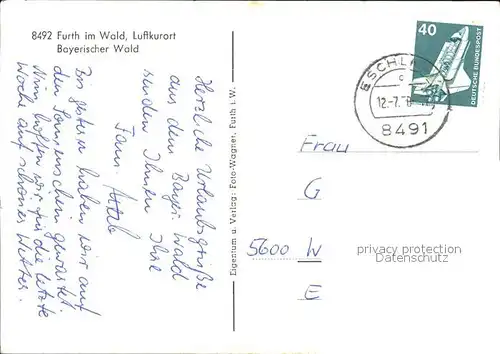 8492 Furth im Wald, Luftkurort
Bayerischer Wald
Herzliche Urlaubsgrüße
aus dem Bayer. Wald
senden Ihnen Ihre
Fam.
Bis gestern haben wir auf
den Sonnenschein gewartet.
Nun hoffen wir für die letzte
Woche auf schönes Wetter.
Eigentum u. Verlag: Foto-Wagner, Furth i. W.
40
DEUTSCHE BUNDESPOST
ESCHL
c
12.-7.
8491
Frau
G
5600 W
E
privacy protection
Datenschutz